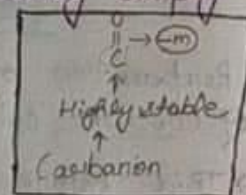 O
||
C → -m
↑
Highly stable
↑
Carbanion